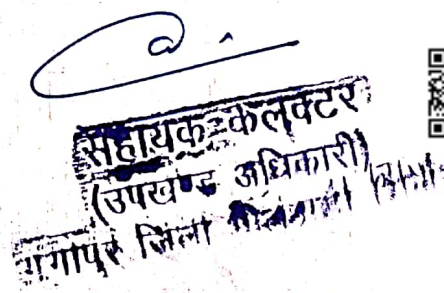 सहायक कलक्टर
(उपखण्ड अधिकारी)
गंगापुर जिला